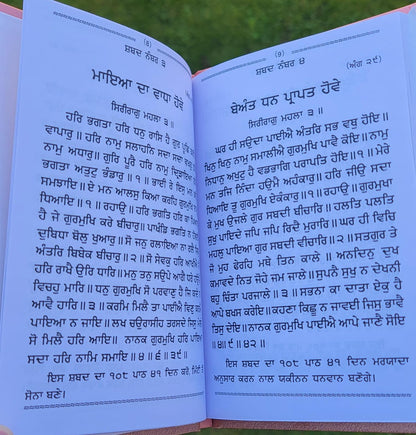 (8)
ਸ਼ਬਦ ਨੰਬਰ ੩
ਮਾਇਆ ਦਾ ਵਾਧਾ ਹੋਵੇ
ਸਿਰੀਰਾਗੁ ਮਹਲਾ ੩ ॥
ਹਰਿ ਭਗਤਾ ਹਰਿ ਧਨੁ ਰਾਸਿ ਹੈ ਗੁਰ ਪੂਛਿ
ਵਾਪਾਰੁ ॥ ਹਰਿ ਨਾਮੁ ਸਲਾਹਨਿ ਸਦਾ ਸਦਾ ਵਖਰੁ
ਨਾਮੁ ਅਧਾਰੁ ॥ ਗੁਰਿ ਪੂਰੈ ਹਰਿ ਨਾਮੁ ਦ੍ਰਿੜਾਇਆ
ਭਗਤਾ ਅਤੁਟੁ ਭੰਡਾਰੁ ॥ ੧ ॥ ਭਾਈ ਰੇ ਇਸੁ ਮਨ
ਸਮਝਾਇ ॥ ਏ ਮਨ ਆਲਸੁ ਕਿਆ ਕਰਹਿ ਗੁਰਮੁਖਿ
ਧਿਆਇ ॥ ੧ ॥ ਰਹਾਉ ॥ ਹਰਿ ਭਗਤਿ ਹਰਿ
ਹੈ ਜੇ ਗੁਰਮੁਖਿ ਕਰੇ ਬੀਚਾਰੁ ॥ ਪਾਖੰਡਿ ਭਗਤਿ ਨ
ਦੁਬਿਧਾ ਬੋਲੁ ਖੁਆਰੁ ॥ ਸੋ ਜਨੁ ਰਲਾਇਆ ਨਾ
ਅੰਤਰਿ ਬਿਬੇਕ ਬੀਚਾਰੁ ॥ ੨ ॥ ਸੋ ਸੇਵਕੁ ਹਰਿ
ਹਰਿ ਰਾਖੈ ਉਰਿ ਧਾਰਿ ॥ ਮਨੁ ਤਨੁ ਸਉਪੇ ਆਗੈ
ਵਿਚਹੁ ਮਾਰਿ ॥ ਧਨੁ ਗੁਰਮੁਖਿ ਸੋ ਪਰਵਾਣੁ ਹੈ ਜਿ
ਆਵੈ ਹਾਰਿ ॥ ੩ ॥ ਕਰਮਿ ਮਿਲੈ ਤਾ ਪਾਈਐ ਵਿਣੁ
ਪਾਇਆ ਨ ਜਾਇ ॥ ਲਖ ਚਉਰਾਸੀਹ ਤਰਸਦੇ ਜਿਸੁ
ਸੋ ਮਿਲੈ ਹਰਿ ਆਇ ॥ ਨਾਨਕ ਗੁਰਮੁਖਿ ਹਰਿ ਪਾਇਆ
ਸਦਾ ਹਰਿ ਨਾਮਿ ਸਮਾਇ ॥ ੪ ॥ ੬ ॥ ੩੯ ॥
ਇਸ ਸ਼ਬਦ ਦਾ ੧੦੮ ਪਾਠ ੪੧ ਦਿਨ ਕਰੋ,
ਸੋਨਾ ਬਣੇ ।
(9)
ਸ਼ਬਦ ਨੰਬਰ ੪ (ਅੰਗ ੨੯)
ਬੇਅੰਤ ਧਨ ਪ੍ਰਾਪਤ ਹੋਵੇ
ਸਿਰੀਰਾਗੁ ਮਹਲਾ ੩ ॥
ਘਰ ਹੀ ਸਉਦਾ ਪਾਈਐ ਅੰਤਰਿ ਸਭ ਵਥੁ ਹੋਇ ॥
ਖਿਨੁ ਖਿਨੁ ਨਾਮੁ ਸਮਾਲੀਐ ਗੁਰਮੁਖਿ ਪਾਵੈ ਕੋਇ ॥ ਨਾਮੁ
ਨਿਧਾਨੁ ਅਖੁਟੁ ਹੈ ਵਡਭਾਗਿ ਪਰਾਪਤਿ ਹੋਇ ॥ ੧ ॥ ਮੇਰੇ
ਮਨ ਤਜਿ ਨਿੰਦਾ ਹਉਮੈ ਅਹੰਕਾਰੁ ॥ ਹਰਿ ਜੀਉ ਸਦਾ
ਧਿਆਇ ਤੂ ਗੁਰਮੁਖਿ ਏਕੰਕਾਰੁ ॥ ੧ ॥ ਰਹਾਉ ॥ ਗੁਰਮੁਖਾ
ਕੇ ਮੁਖ ਉਜਲੇ ਗੁਰ ਸਬਦੀ ਬੀਚਾਰਿ ॥ ਹਲਤਿ ਪਲਤਿ
ਸੁਖੁ ਪਾਇਦੇ ਜਪਿ ਜਪਿ ਰਿਦੈ ਮੁਰਾਰਿ ॥ ਘਰ ਹੀ ਵਿਚਿ
ਮਹਲੁ ਪਾਇਆ ਗੁਰ ਸਬਦੀ ਵੀਚਾਰਿ ॥ ੨ ॥ ਸਤਗੁਰ ਤੇ
ਜੋ ਮੁਹ ਫੇਰਹਿ ਮਥੇ ਤਿਨ ਕਾਲੇ ॥ ਅਨਦਿਨੁ ਦੁਖ
ਕਮਾਵਦੇ ਨਿਤ ਜੋਹੇ ਜਮ ਜਾਲੇ ॥ ਸੁਪਨੈ ਸੁਖੁ ਨ ਦੇਖਨੀ
ਬਹੁ ਚਿੰਤਾ ਪਰਜਾਲੇ ॥ ੩ ॥ ਸਭਨਾ ਕਾ ਦਾਤਾ ਏਕੁ ਹੈ
ਆਪੇ ਬਖਸ ਕਰੇਇ ॥ ਕਹਣਾ ਕਿਛੂ ਨ ਜਾਵਈ ਜਿਸੁ ਭਾਵੈ
ਤਿਸੁ ਦੇਇ ॥ ਨਾਨਕ ਗੁਰਮੁਖਿ ਪਾਈਐ ਆਪੇ ਜਾਣੈ ਸੋਇ
॥ ੪ ॥ ੯ ॥ ੪੨ ॥
ਇਸ ਸ਼ਬਦ ਦਾ ੧੦੮ ਪਾਠ ੪੧ ਦਿਨ ਮਰਯਾਦਾ
ਅਨੁਸਾਰ ਕਰਨ ਨਾਲ ਯਕੀਨਨ ਧਨਵਾਨ ਬਣੋਗੇ ।